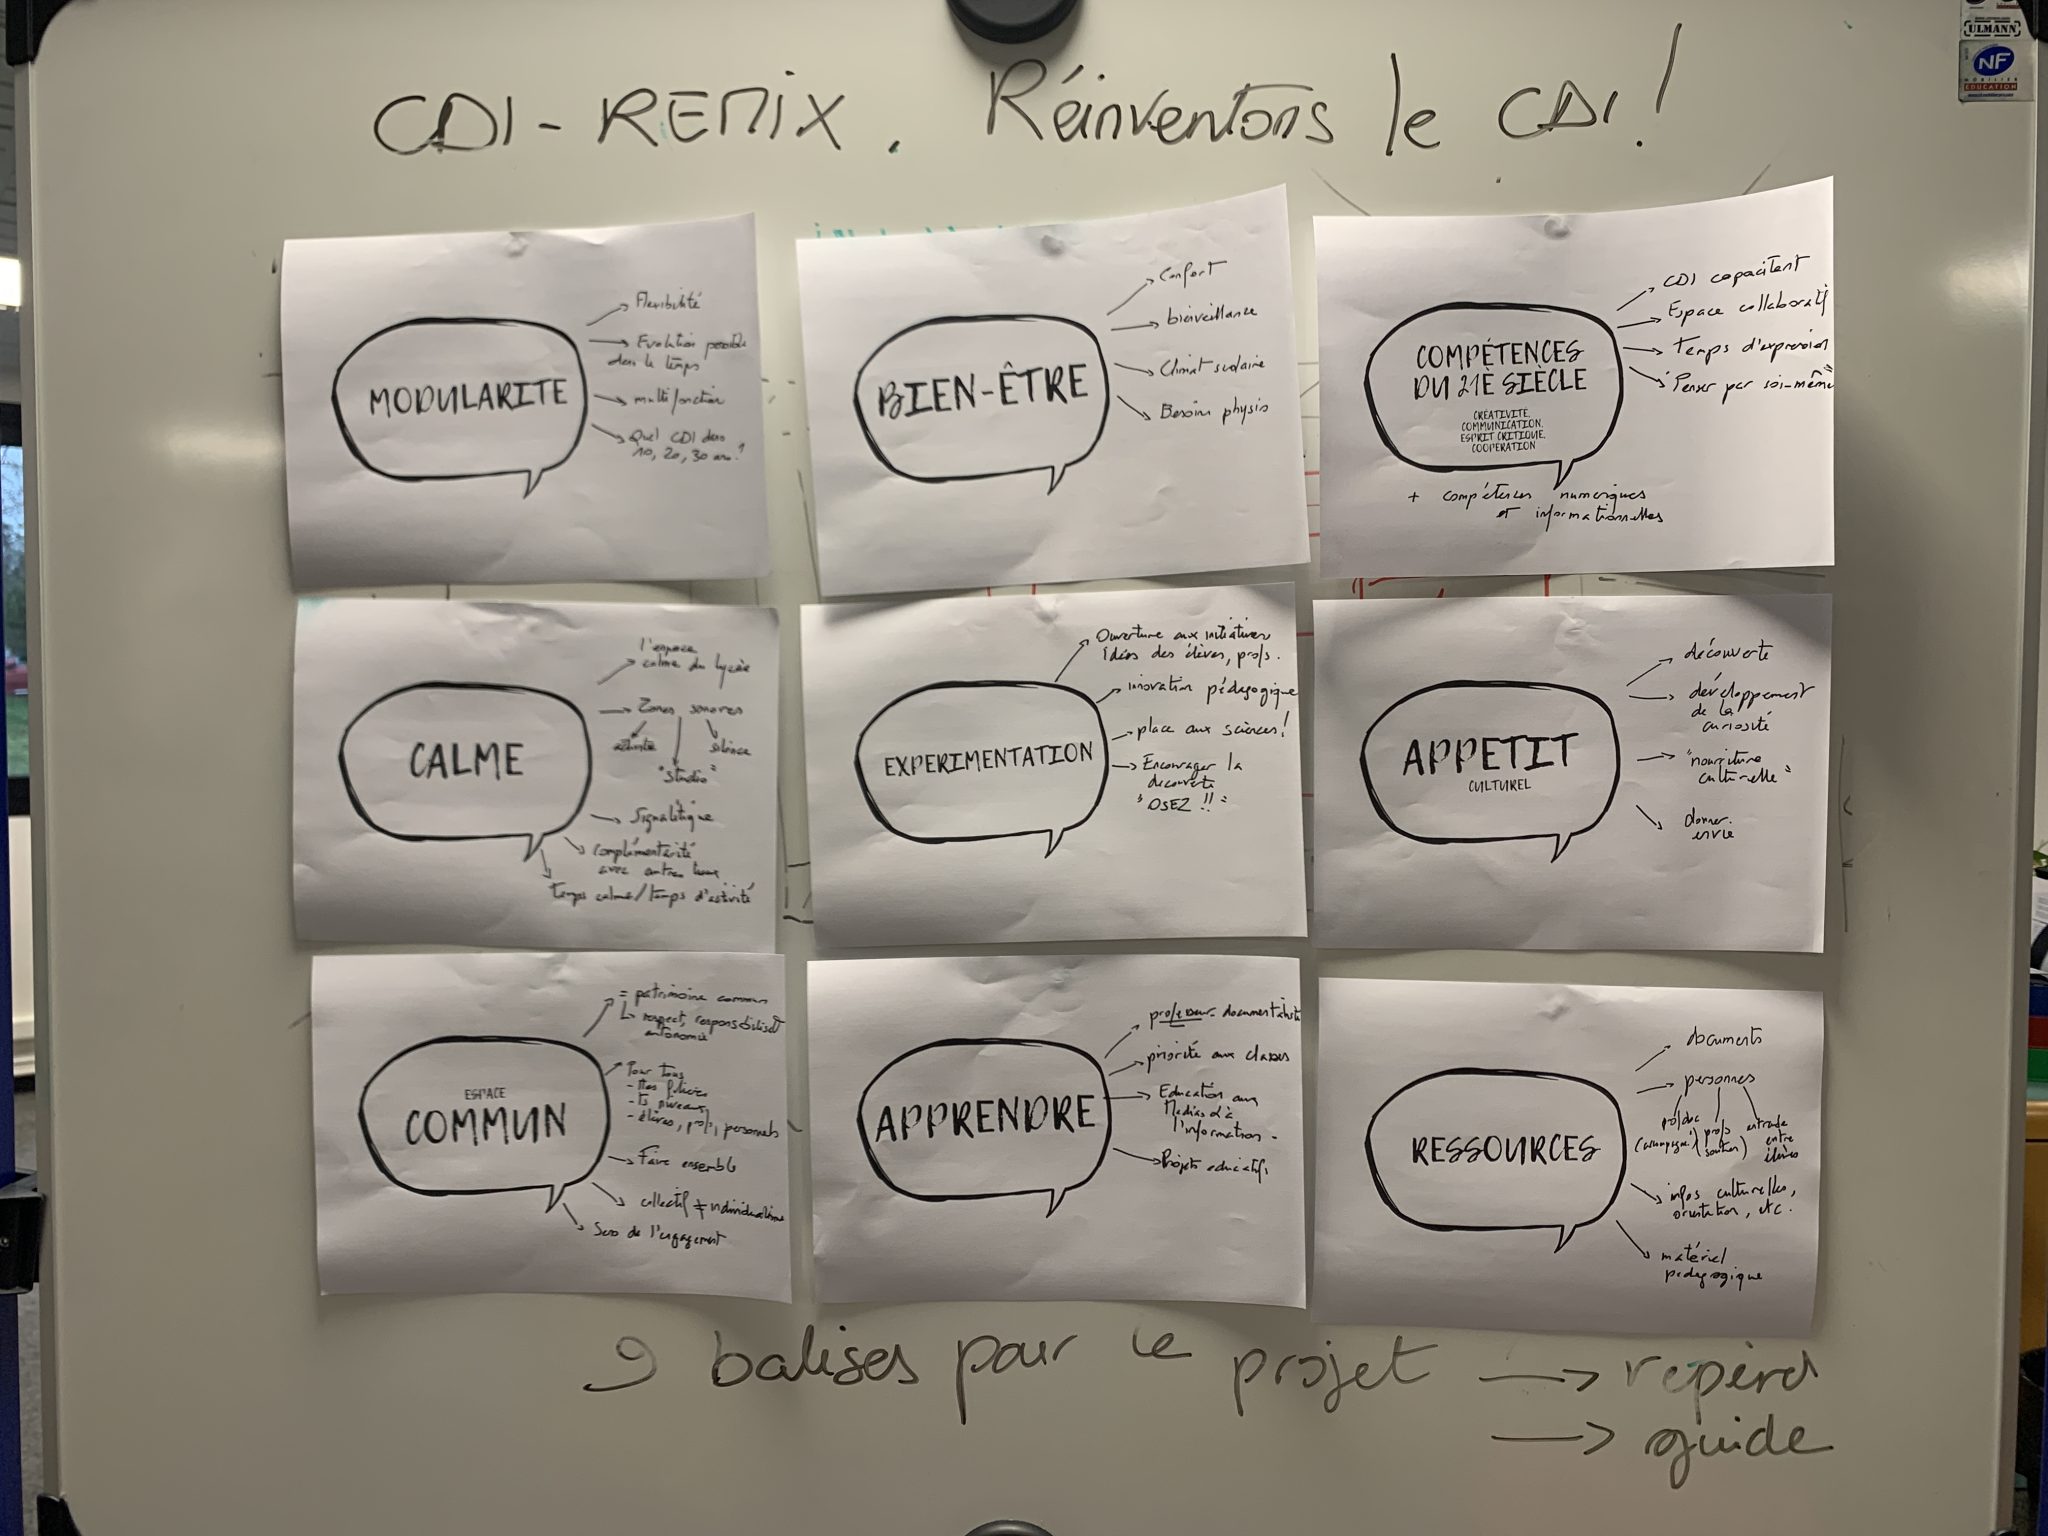 CDI-REMIX. Réinventons le CDI!
ULMANN
NF
MOBILIER
EDUCATION
MODULARITE
Flexibilité
Evolution possible
dans le temps
multifonction
Quel CDI dans
10, 20, 30 ans?
BIEN-ÊTRE
Confort
bienveillance
Climat scolaire
Besoins physio
COMPÉTENCES
DU 21È SIÈCLE
CRÉATIVITE,
COMMUNICATION,
ESPRIT CRITIQUE,
COOPERATION
CDI capacitant
Espace collaboratif
Temps d'expression
"Penser par soi-même"
+ compétences numériques
et informationnelles
CALME
l'espace
calme du lycée
Zones sonores
activité
silence
"studio"
Signalétique
Complémentarité
avec autres lieux
Temps calme/temps d'activité
EXPERIMENTATION
Ouverture aux initiatives
idées des élèves, profs.
inovation pédagogique
place aux sciences!
Encourager la
découverte
"OSEZ !!"
APPETIT
CULTUREL
découverte
développement
de la
curiosité
"nourriture
culturelle"
donner
envie
ESPACE
COMMUN
= patrimoine commun
respect, responsabilisat
autonomie
Pour tous
- publics
- ts niveaux
- élèves, profs, personnels
Faire ensemble
collectif ≠ individualisme
Sens de l'engagement
APPRENDRE
professeur-documentaliste
priorité aux classes
Education aux
Médias & à
l'information
Projets educatifs
RESSOURCES
documents
personnes
prof doc
profs
entraide
(soutien)
entre
élèves
infos culturelles,
orientation, etc.
matériel
pédagogique
9 balises pour le projet → repères
→ guide